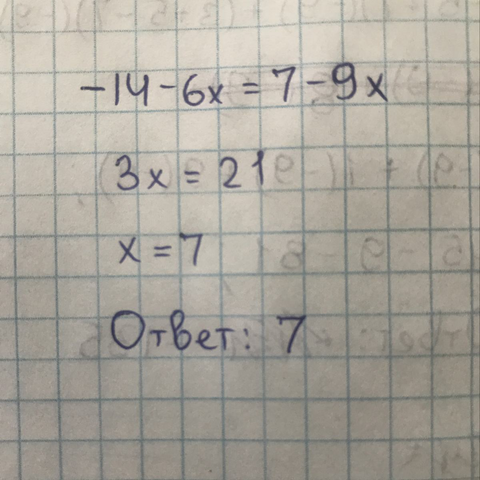 -14-6x=7-9x
3x=21
x=7
Ответ: 7